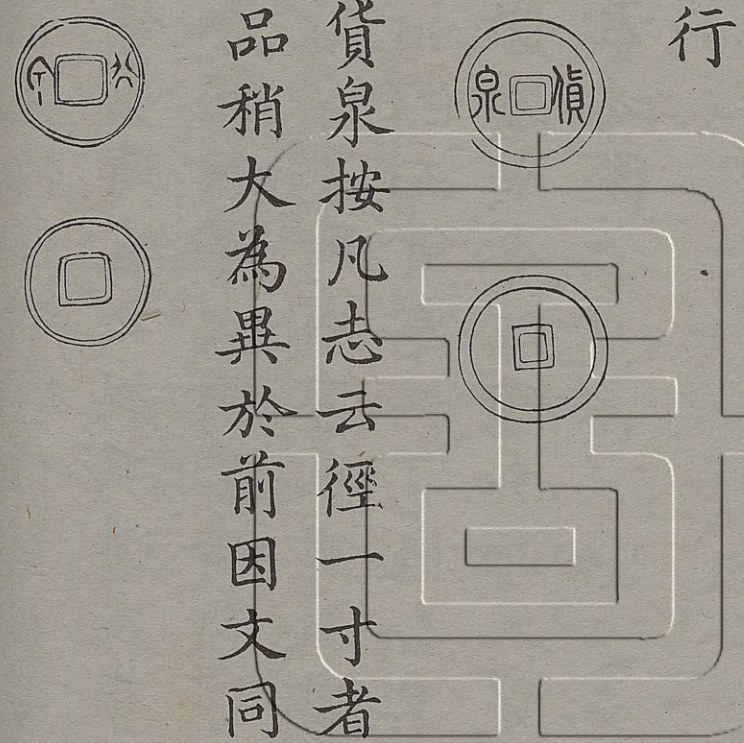 行
貨泉
貨泉按凡志云徑一寸者
品稍大為異於前因文同